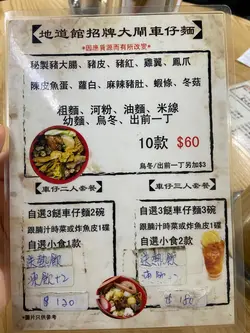 地道館招牌大閘車仔麵
*因應貨源而有所改變*
秘製豬大腸、豬皮、豬紅、雞翼、鳳爪
陳皮魚蛋、蘿白、麻辣豬肚、蝦條、冬菇
粗麵、河粉、油麵、米線
幼麵、烏冬、出前一丁
10款 $60
烏冬/出前一丁另加$3
車仔二人套餐
自選3餸車仔麵2碗
跟腩汁時菜或炸魚皮1碟
自選小食1款
送熱飲
凍飲+2
$130
車仔三人套餐
自選3餸車仔麵3碗
跟腩汁時菜或炸魚皮1碟
自選小食2款
送熱飲
$180
*圖片只供參考